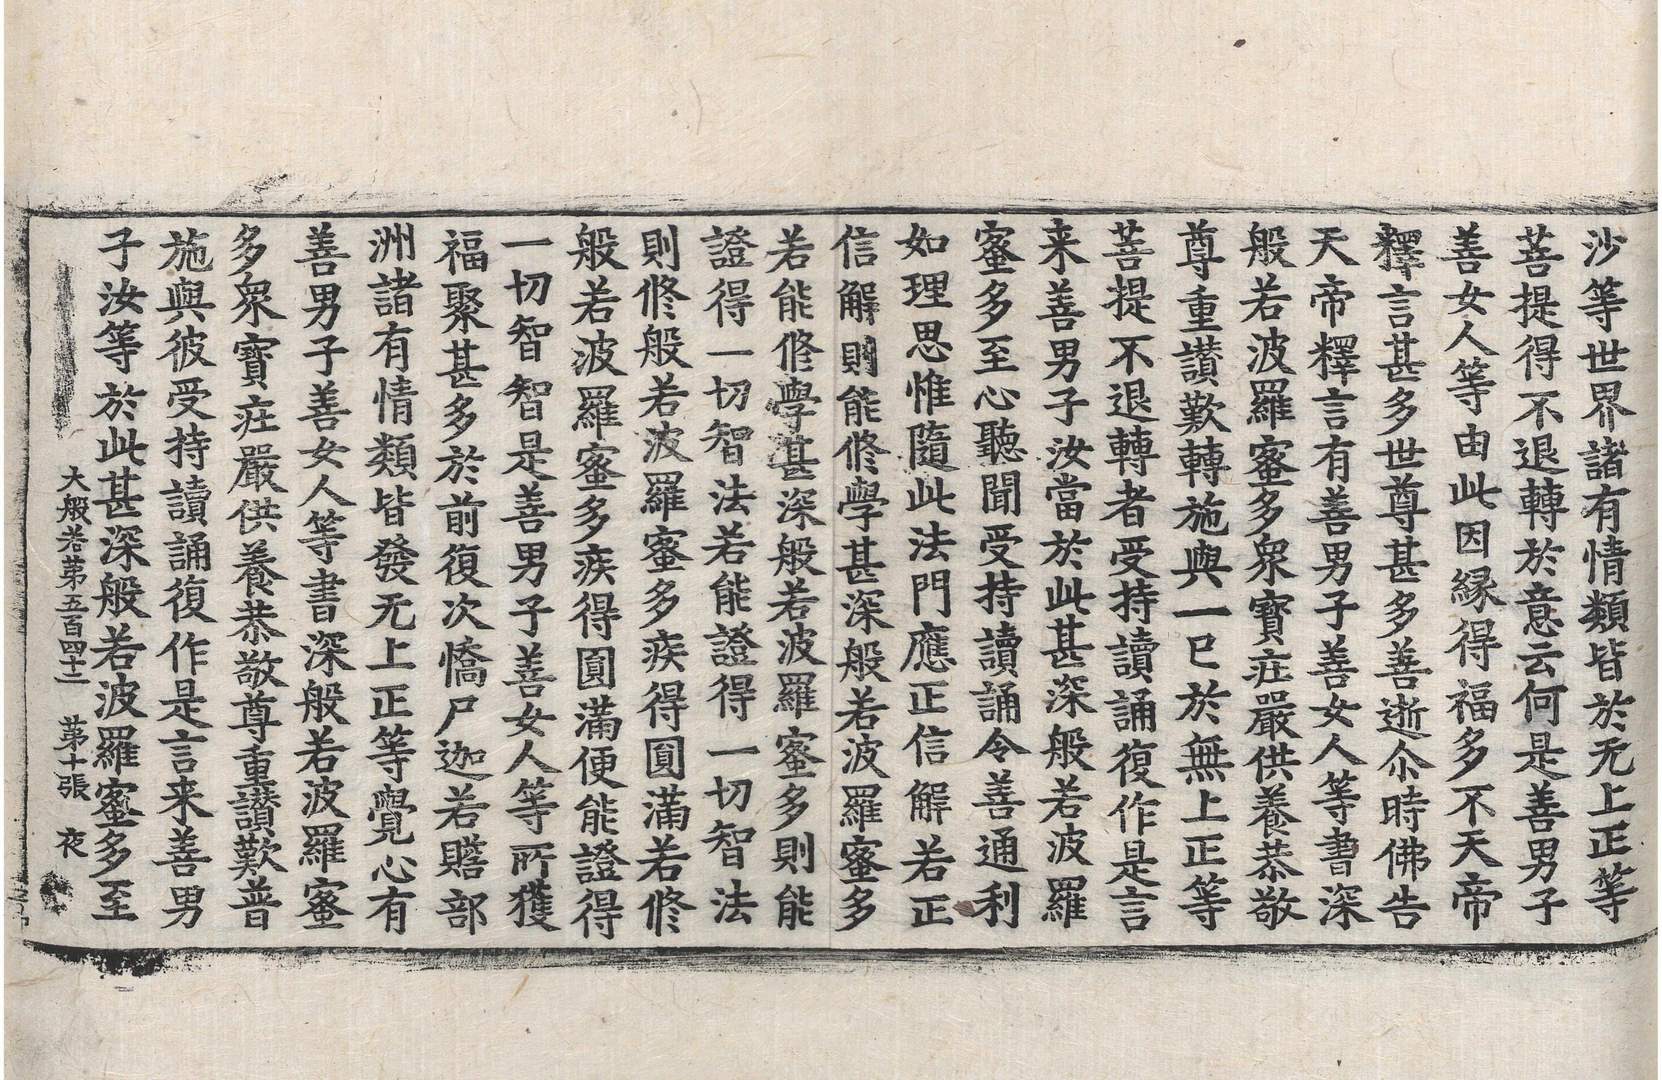 沙等世界諸有情類皆於无上正等
菩提得不退轉於意云何是善男子
善女人等由此因緣得福多不天帝
釋言甚多世尊甚多善逝尒時佛告
天帝釋言有善男子善女人等書深
般若波羅蜜多衆寶㽵嚴供養恭敬
尊重讃歎轉施與一已於無上正等
菩提不退轉者受持讀誦復作是言
来善男子汝當於此甚深般若波羅
蜜多至心聽聞受持讀誦令善通利
如理思惟隨此法門應正信解若正
信解則能修學甚深般若波羅蜜多
若能修學甚深般若波羅蜜多則能
證得一切智法若能證得一切智法
則修般若波羅蜜多疾得圓滿若修
般若波羅蜜多疾得圓滿便能證得
一切智智是善男子善女人等所獲
福聚甚多於前復次憍尸迦若贍部
洲諸有情類皆發无上正等覺心有
善男子善女人等書深般若波羅蜜
多衆寶㽵嚴供養恭敬尊重讃歎普
施與彼受持讀誦復作是言来善男
子汝等於此甚深般若波羅蜜多至
大般若苐五百四十二 苐十張 夜